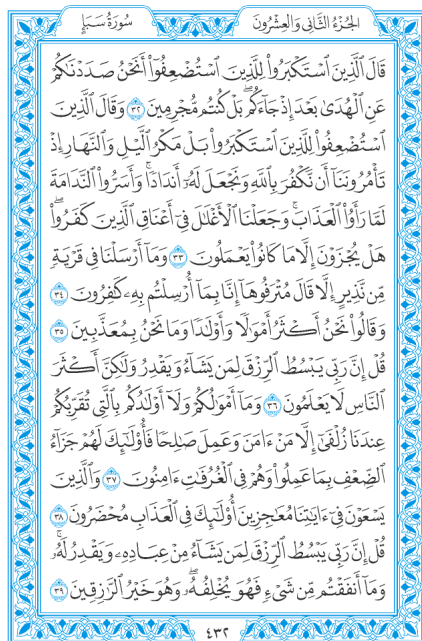 الجُزْءُ الثَّانِي وَالعِشْرُونَ
سُورَةُ سَبَإٍ
قَالَ ٱلَّذِينَ ٱسْتَكْبَرُوا۟ لِلَّذِينَ ٱسْتُضْعِفُوٓا۟ أَنَحْنُ صَدَدْنَٰكُمْ
عَنِ ٱلْهُدَىٰ بَعْدَ إِذْ جَآءَكُم ۖ بَلْ كُنتُم مُّجْرِمِينَ ٣٢ وَقَالَ ٱلَّذِينَ
ٱسْتُضْعِفُوا۟ لِلَّذِينَ ٱسْتَكْبَرُوا۟ بَلْ مَكْرُ ٱلَّيْلِ وَٱلنَّهَارِ إِذْ
تَأْمُرُونَنَآ أَن نَّكْفُرَ بِٱللَّهِ وَنَجْعَلَ لَهُۥٓ أَندَادًا ۚ وَأَسَرُّوا۟ ٱلنَّدَامَةَ
لَمَّا رَأَوُا۟ ٱلْعَذَابَ ۚ وَجَعَلْنَا ٱلْأَغْلَٰلَ فِىٓ أَعْنَاقِ ٱلَّذِينَ كَفَرُوا۟ ۖ
هَلْ يُجْزَوْنَ إِلَّا مَا كَانُوا۟ يَعْمَلُونَ ٣٣ وَمَآ أَرْسَلْنَا فِى قَرْيَةٍ
مِّن نَّذِيرٍ إِلَّا قَالَ مُتْرَفُوهَآ إِنَّا بِمَآ أُرْسِلْتُم بِهِۦ كَٰفِرُونَ ٣٤
وَقَالُوا۟ نَحْنُ أَكْثَرُ أَمْوَٰلًا وَأَوْلَٰدًا وَمَا نَحْنُ بِمُعَذَّبِينَ ٣٥
قُلْ إِنَّ رَبِّى يَبْسُطُ ٱلرِّزْقَ لِمَن يَشَآءُ وَيَقْدِرُ وَلَٰكِنَّ أَكْثَرَ
ٱلنَّاسِ لَا يَعْلَمُونَ ٣٦ وَمَآ أَمْوَٰلُكُمْ وَلَآ أَوْلَٰدُكُم بِٱلَّتِى تُقَرِّبُكُمْ
عِندَنَا زُلْفَىٰٓ إِلَّا مَنْ ءَامَنَ وَعَمِلَ صَٰلِحًا فَأُو۟لَٰٓئِكَ لَهُمْ جَزَآءُ
ٱلضِّعْفِ بِمَا عَمِلُوا۟ وَهُمْ فِى ٱلْغُرُفَٰتِ ءَامِنُونَ ٣٧ وَٱلَّذِينَ
يَسْعَوْنَ فِىٓ ءَايَٰتِنَا مُعَٰجِزِينَ أُو۟لَٰٓئِكَ فِى ٱلْعَذَابِ مُحْضَرُونَ ٣٨
قُلْ إِنَّ رَبِّى يَبْسُطُ ٱلرِّزْقَ لِمَن يَشَآءُ مِنْ عِبَادِهِۦ وَيَقْدِرُ لَهُۥ ۚ
وَمَآ أَنفَقْتُم مِّن شَىْءٍ فَهُوَ يُخْلِفُهُۥ ۖ وَهُوَ خَيْرُ ٱلرَّٰزِقِينَ ٣٩
٤٣٢